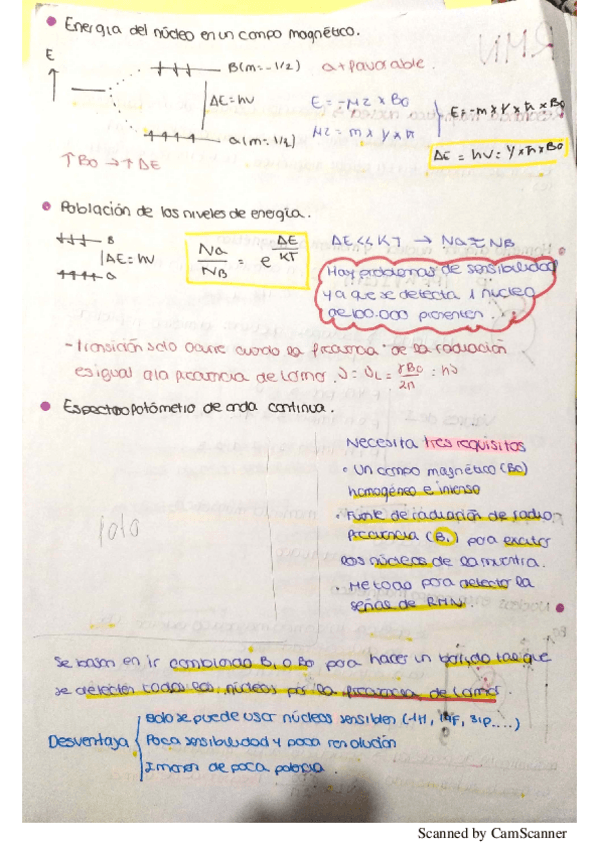 • Energía del núcleo en un campo magnético.
E
β(m=-1/2) α + favorable.
ΔE=hν
E=-μz × B0
E=-m×γ×ħ×B0
μz = m×γ×ħ
α(m=1/2)
ΔE = hν = γ×ħ×B0
↑B0 → ↑ΔE
• Población de los niveles de energía.
β
ΔE=hν
α
Nα/Nβ = e^ΔE/KT
ΔE<<KT → Nα≈Nβ
Hay problemas de sensibilidad
ya que se detecta 1 núcleo
de 100.000 presentes.
- Transición solo ocurre cuando la frecuencia de la radiación
es igual a la frecuencia de Larmor. ν = νL = γB0/2π = hν
• Espectrofotómetro de onda continua.
Necesita tres requisitos
• Un campo magnético (B0)
homogéneo e intenso
• Fuente de radiación de radio
frecuencia (B1) para excitar
los núcleos de la muestra.
• Método para detectar la
señas de RMN.
foto
Se basan en ir cambiando B1 o B0 para hacer un barrido tal que
se detecten todos los núcleos por la frecuencia de Larmor.
Desventaja
Solo se puede usar núcleos sensibles (1H, 19F, 31P....)
Poca sensibilidad y poca resolución
Imanes de poca potencia.
Scanned by CamScanner